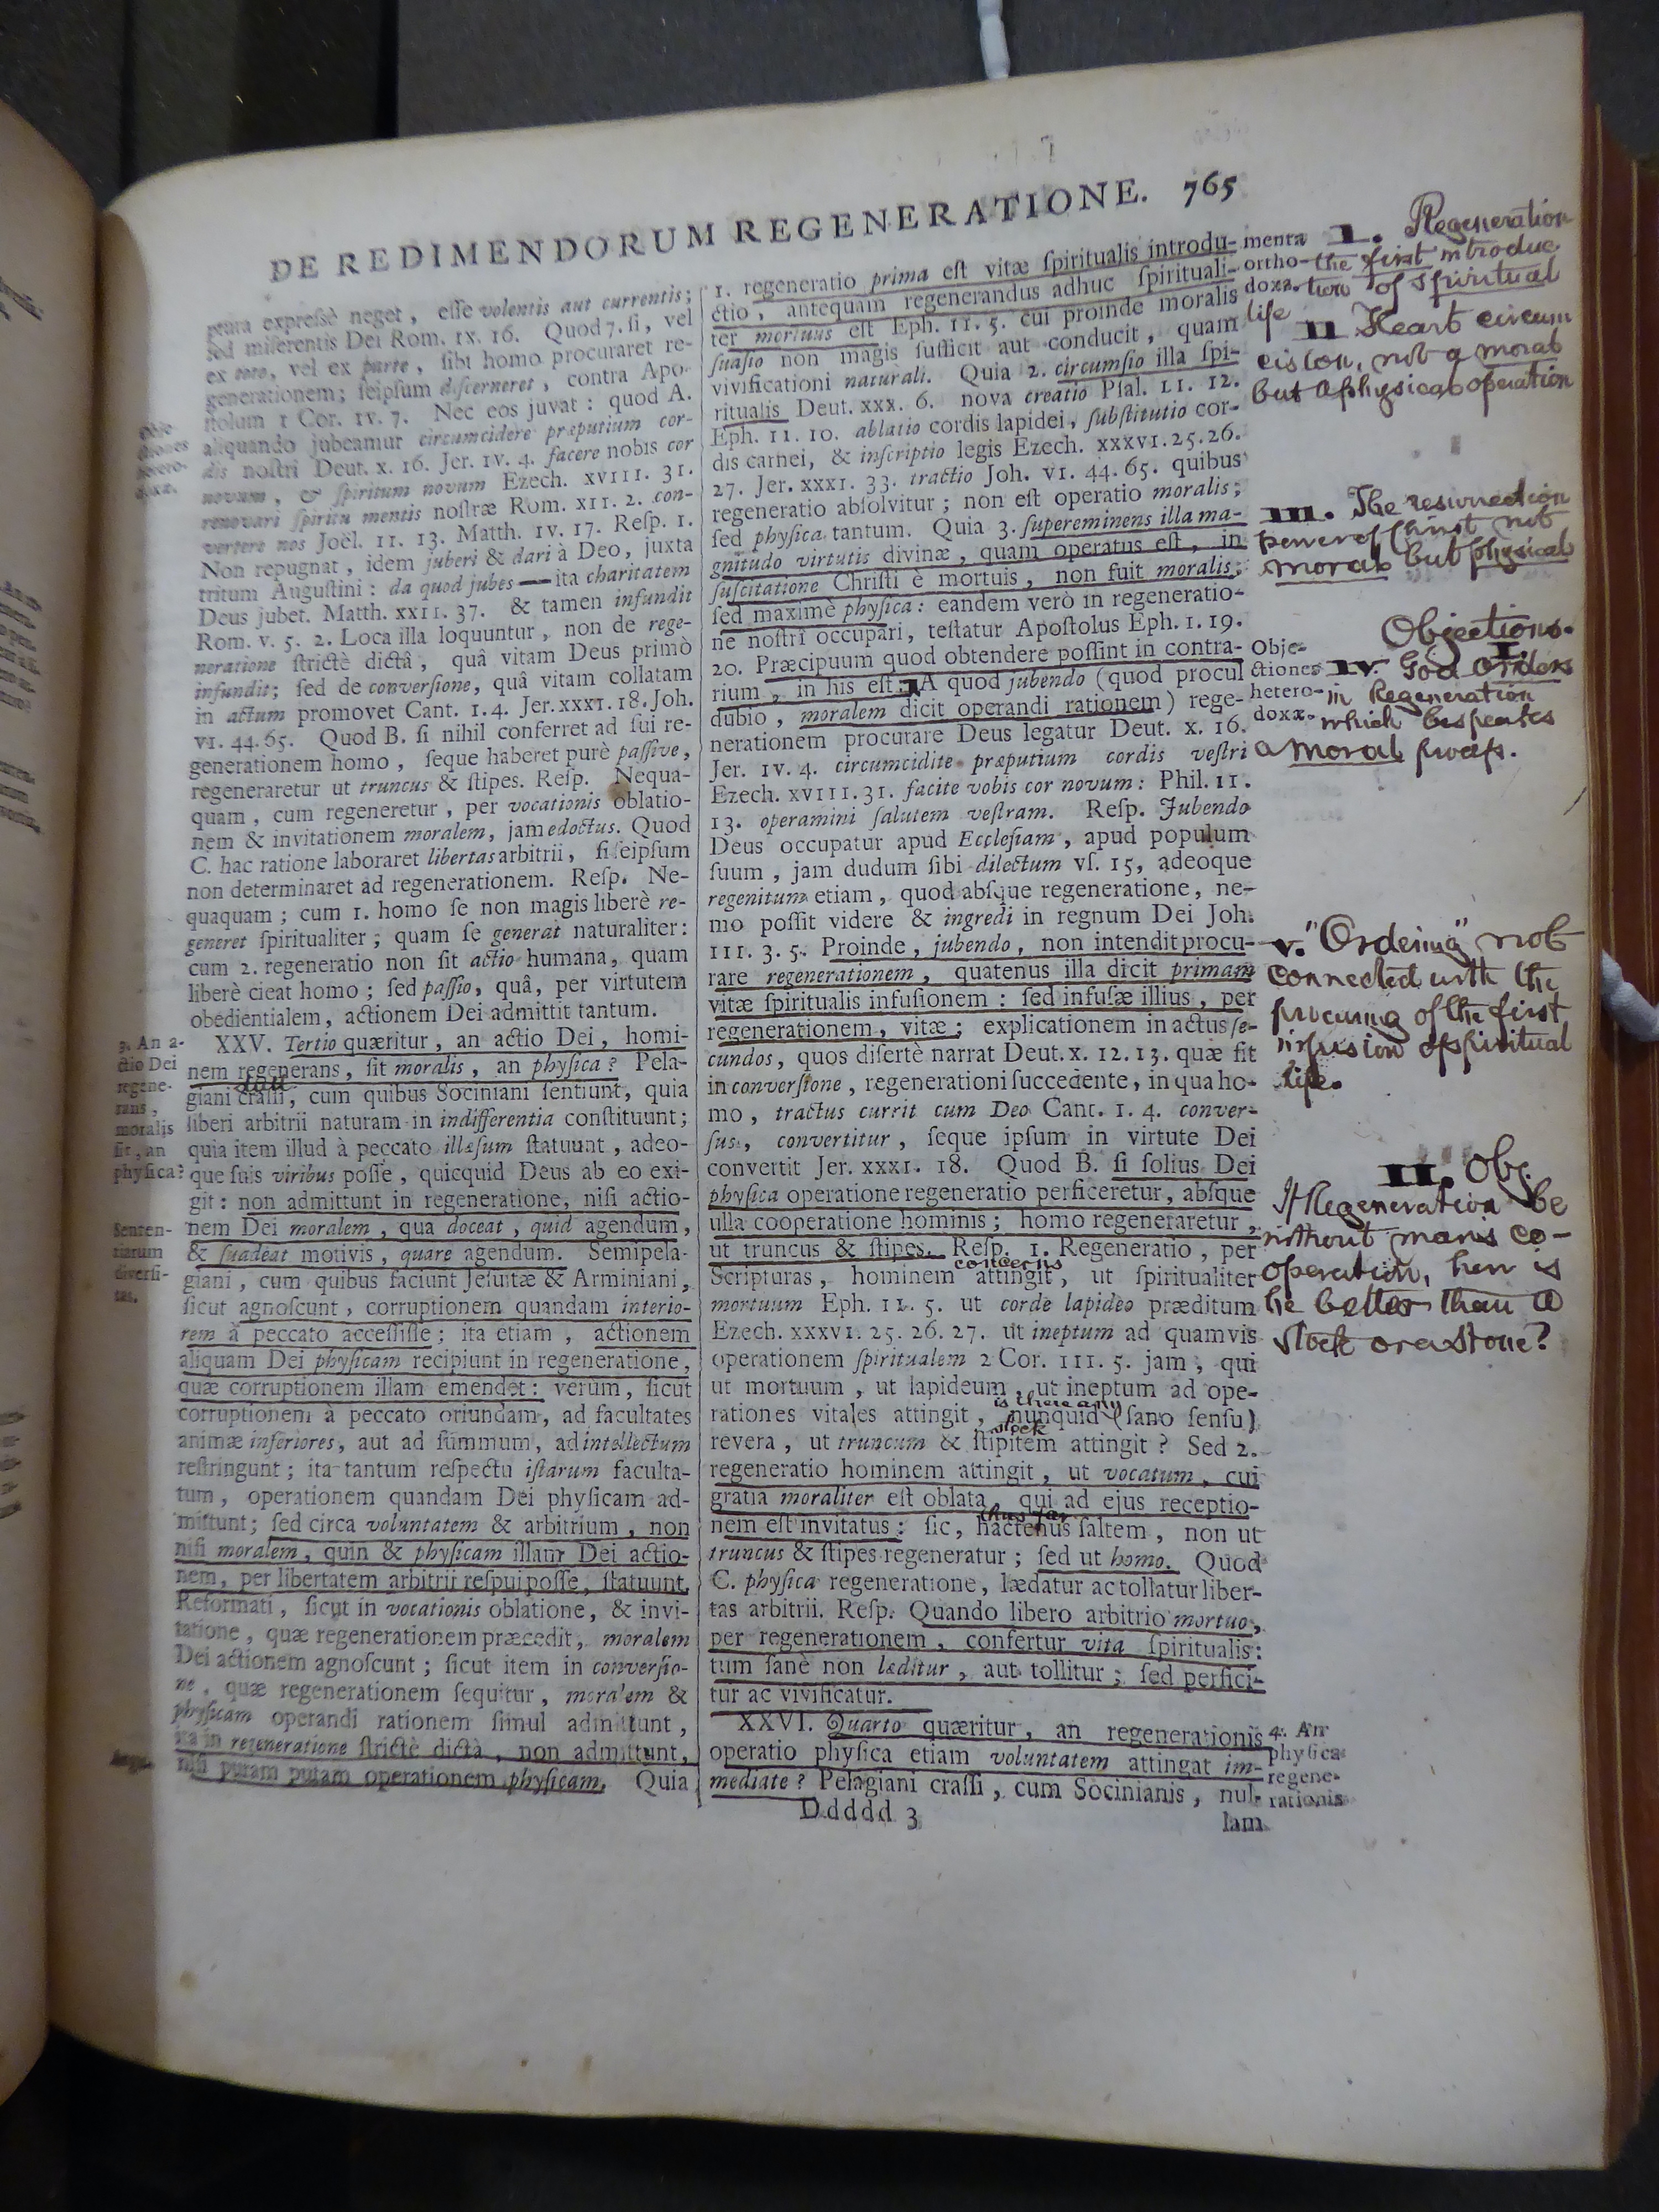 DE REDIMENDORUM REGENERATIONE. 765
ptura expressè neget, esse volentis aut currentis;
sed miserentis Dei Rom. IX. 16. Quod 7. si, vel
ex toto, vel ex parte, sibi homo procuraret re-
generationem; seipsum discerneret, contra Apo-
stolum 1 Cor. IV. 7. Nec eos juvat: quod A.
aliquando jubeamur circumcidere præputium cor-
dis nostri Deut. X. 16. Jer. IV. 4. facere nobis cor
novum, & spiritum novum Ezech. XVIII. 31.
renovari spiritu mentis nostræ Rom. XII. 2. con-
vertere nos Joël. II. 13. Matth. IV. 17. Resp. 1.
Non repugnat, idem juberi & dari à Deo, juxta
tritum Augustini: da quod jubes — ita charitatem
Deus jubet. Matth. XXII. 37. & tamen infundit
Rom. V. 5. 2. Loca illa loquuntur, non de rege-
neratione strictè dictâ, quâ vitam Deus primò
infundit; sed de conversione, quâ vitam collatam
in actum promovet Cant. I. 4. Jer. XXXI. 18. Joh.
VI. 44. 65. Quod B. si nihil conferret ad sui re-
generationem homo, seque haberet purè passive,
regeneraretur ut truncus & stipes. Resp. Nequa-
quam, cum regeneretur, per vocationis oblatio-
nem & invitationem moralem, jam edoctus. Quod
C. hac ratione laboraret libertas arbitrii, si seipsum
non determinaret ad regenerationem. Resp. Ne-
quaquam; cum 1. homo se non magis liberè re-
generet spiritualiter; quam se generat naturaliter:
cum 2. regeneratio non sit actio humana, quam
liberè cieat homo; sed passio, quâ, per virtutem
obedientialem, actionem Dei admittit tantum.
XXV. Tertio quæritur, an actio Dei, homi-
nem regenerans, sit moralis, an physica? Pela-
giani crassi, cum quibus Sociniani sentiunt, quia
liberi arbitrii naturam in indifferentia constituunt;
quia item illud à peccato illæsum statuunt, adeo-
que suis viribus posse, quicquid Deus ab eo exi-
git: non admittunt in regeneratione, nisi actio-
nem Dei moralem, qua doceat, quid agendum,
& suadeat motivis, quare agendum. Semipela-
giani, cum quibus faciunt Jesuitæ & Arminiani,
sicut agnoscunt, corruptionem quandam interio-
rem à peccato accessisse; ita etiam, actionem
aliquam Dei physicam recipiunt in regeneratione,
quæ corruptionem illam emendet: verùm, sicut
corruptionem à peccato oriundam, ad facultates
animæ inferiores, aut ad summum, ad intellectum
restringunt; ita tantum respectu istarum faculta-
tum, operationem quandam Dei physicam ad-
mittunt; sed circa voluntatem & arbitrium, non
nisi moralem, quin & physicam illam Dei actio-
nem, per libertatem arbitrii respui posse, statuunt.
Reformati, sicut in vocationis oblatione, & invi-
tatione, quæ regenerationem præcedit, moralem
Dei actionem agnoscunt; sicut item in conversio-
ne, quæ regenerationem sequitur, moralem &
physicam operandi rationem simul admittunt,
ita in regeneratione strictè dictà, non admittunt,
nisi puram putam operationem physicam. Quia
Obje-
ctiones
hetero-
doxæ.
3. An a-
ctio Dei
regene-
rans,
moralis
sit, an
physica?
Senten-
tiarum
diversi-
tas.
1. regeneratio prima est vitæ spiritualis introdu-
ctio, antequam regenerandus adhuc spirituali-
ter mortuus est Eph. II. 5. cui proinde moralis
suasio non magis sufficit aut conducit, quam
vivificationi naturali. Quia 2. circumsio illa spi-
ritualis Deut. XXX. 6. nova creatio Psal. LI. 12.
Eph. II. 10. ablatio cordis lapidei, substitutio cor-
dis carnei, & inscriptio legis Ezech. XXXVI. 25. 26.
27. Jer. XXXI. 33. tractio Joh. VI. 44. 65. quibus
regeneratio absolvitur; non est operatio moralis;
sed physica tantum. Quia 3. supereminens illa ma-
gnitudo virtutis divinæ, quam operatus est, in
suscitatione Christi è mortuis, non fuit moralis;
sed maximè physica: eandem verò in regeneratio-
ne nostri occupari, testatur Apostolus Eph. I. 19.
20. Præcipuum quod obtendere possint in contra-
rium, in his est: A quod jubendo (quod procul
dubio, moralem dicit operandi rationem) rege-
nerationem procurare Deus legatur Deut. X. 16.
Jer. IV. 4. circumcidite præputium cordis vestri
Ezech. XVIII. 31. facite vobis cor novum: Phil. II.
13. operamini salutem vestram. Resp. Jubendo
Deus occupatur apud Ecclesiam, apud populum
suum, jam dudum sibi dilectum vs. 15, adeoque
regenitum etiam, quod absque regeneratione, ne-
mo possit videre & ingredi in regnum Dei Joh.
III. 3. 5. Proinde, jubendo, non intendit procu-
rare regenerationem, quatenus illa dicit primam
vitæ spiritualis infusionem: sed infusæ illius, per
regenerationem, vitæ; explicationem in actus se-
cundos, quos disertè narrat Deut. X. 12. 13. quæ fit
in conversione, regenerationi succedente, in qua ho-
mo, tractus currit cum Deo Cant. I. 4. conver-
sus, convertitur, seque ipsum in virtute Dei
convertit Jer. XXXI. 18. Quod B. si solius Dei
physica operatione regeneratio perficeretur, absque
ulla cooperatione hominis; homo regeneraretur,
ut truncus & stipes. Resp. 1. Regeneratio, per
concerns
Scripturas, hominem attingit, ut spiritualiter
mortuum Eph. II. 5. ut corde lapideo præditum
Ezech. XXXVI. 25. 26. 27. ut ineptum ad quamvis
operationem spiritualem 2 Cor. III. 5. jam, qui
ut mortuum, ut lapideum, ut ineptum ad ope-
is there any
rationes vitales attingit, nunquid (sano sensu)
stock
revera, ut truncum & stipitem attingit? Sed 2.
regeneratio hominem attingit, ut vocatum, cui
gratia moraliter est oblata, qui ad ejus receptio-
thus far
nem est invitatus: sic, hactenus saltem, non ut
truncus & stipes regeneratur; sed ut homo. Quod
C. physica regeneratione, lædatur ac tollatur liber-
tas arbitrii. Resp. Quando libero arbitrio mortuo,
per regenerationem, confertur vita spiritualis:
tum sanè non læditur, aut tollitur; sed perfici-
tur ac vivificatur.
XXVI. Quarto quæritur, an regenerationis
operatio physica etiam voluntatem attingat im-
mediate? Pelagiani crassi, cum Socinianis, nul-
Ddddd 3
lam
menta
ortho-
doxa.
Obje-
ctiones
hetero-
doxæ.
4. An
physica
regene-
rationis
I. Regeneration
the first introduc
tion of spiritual
life
II Heart circum
cision, not a moral
but a physical operation
III. The resurrection
power of Christ not
moral but physical
Objections.
I.
IV. God orders
in Regeneration
which bespeakes
a moral process.
V. "Ordering" not
connected with the
procuring of the first
infusion of spiritual
life.
II. Obj.
If Regeneration be
without man's co-
operation, how is
he better than a
stock or a stone?